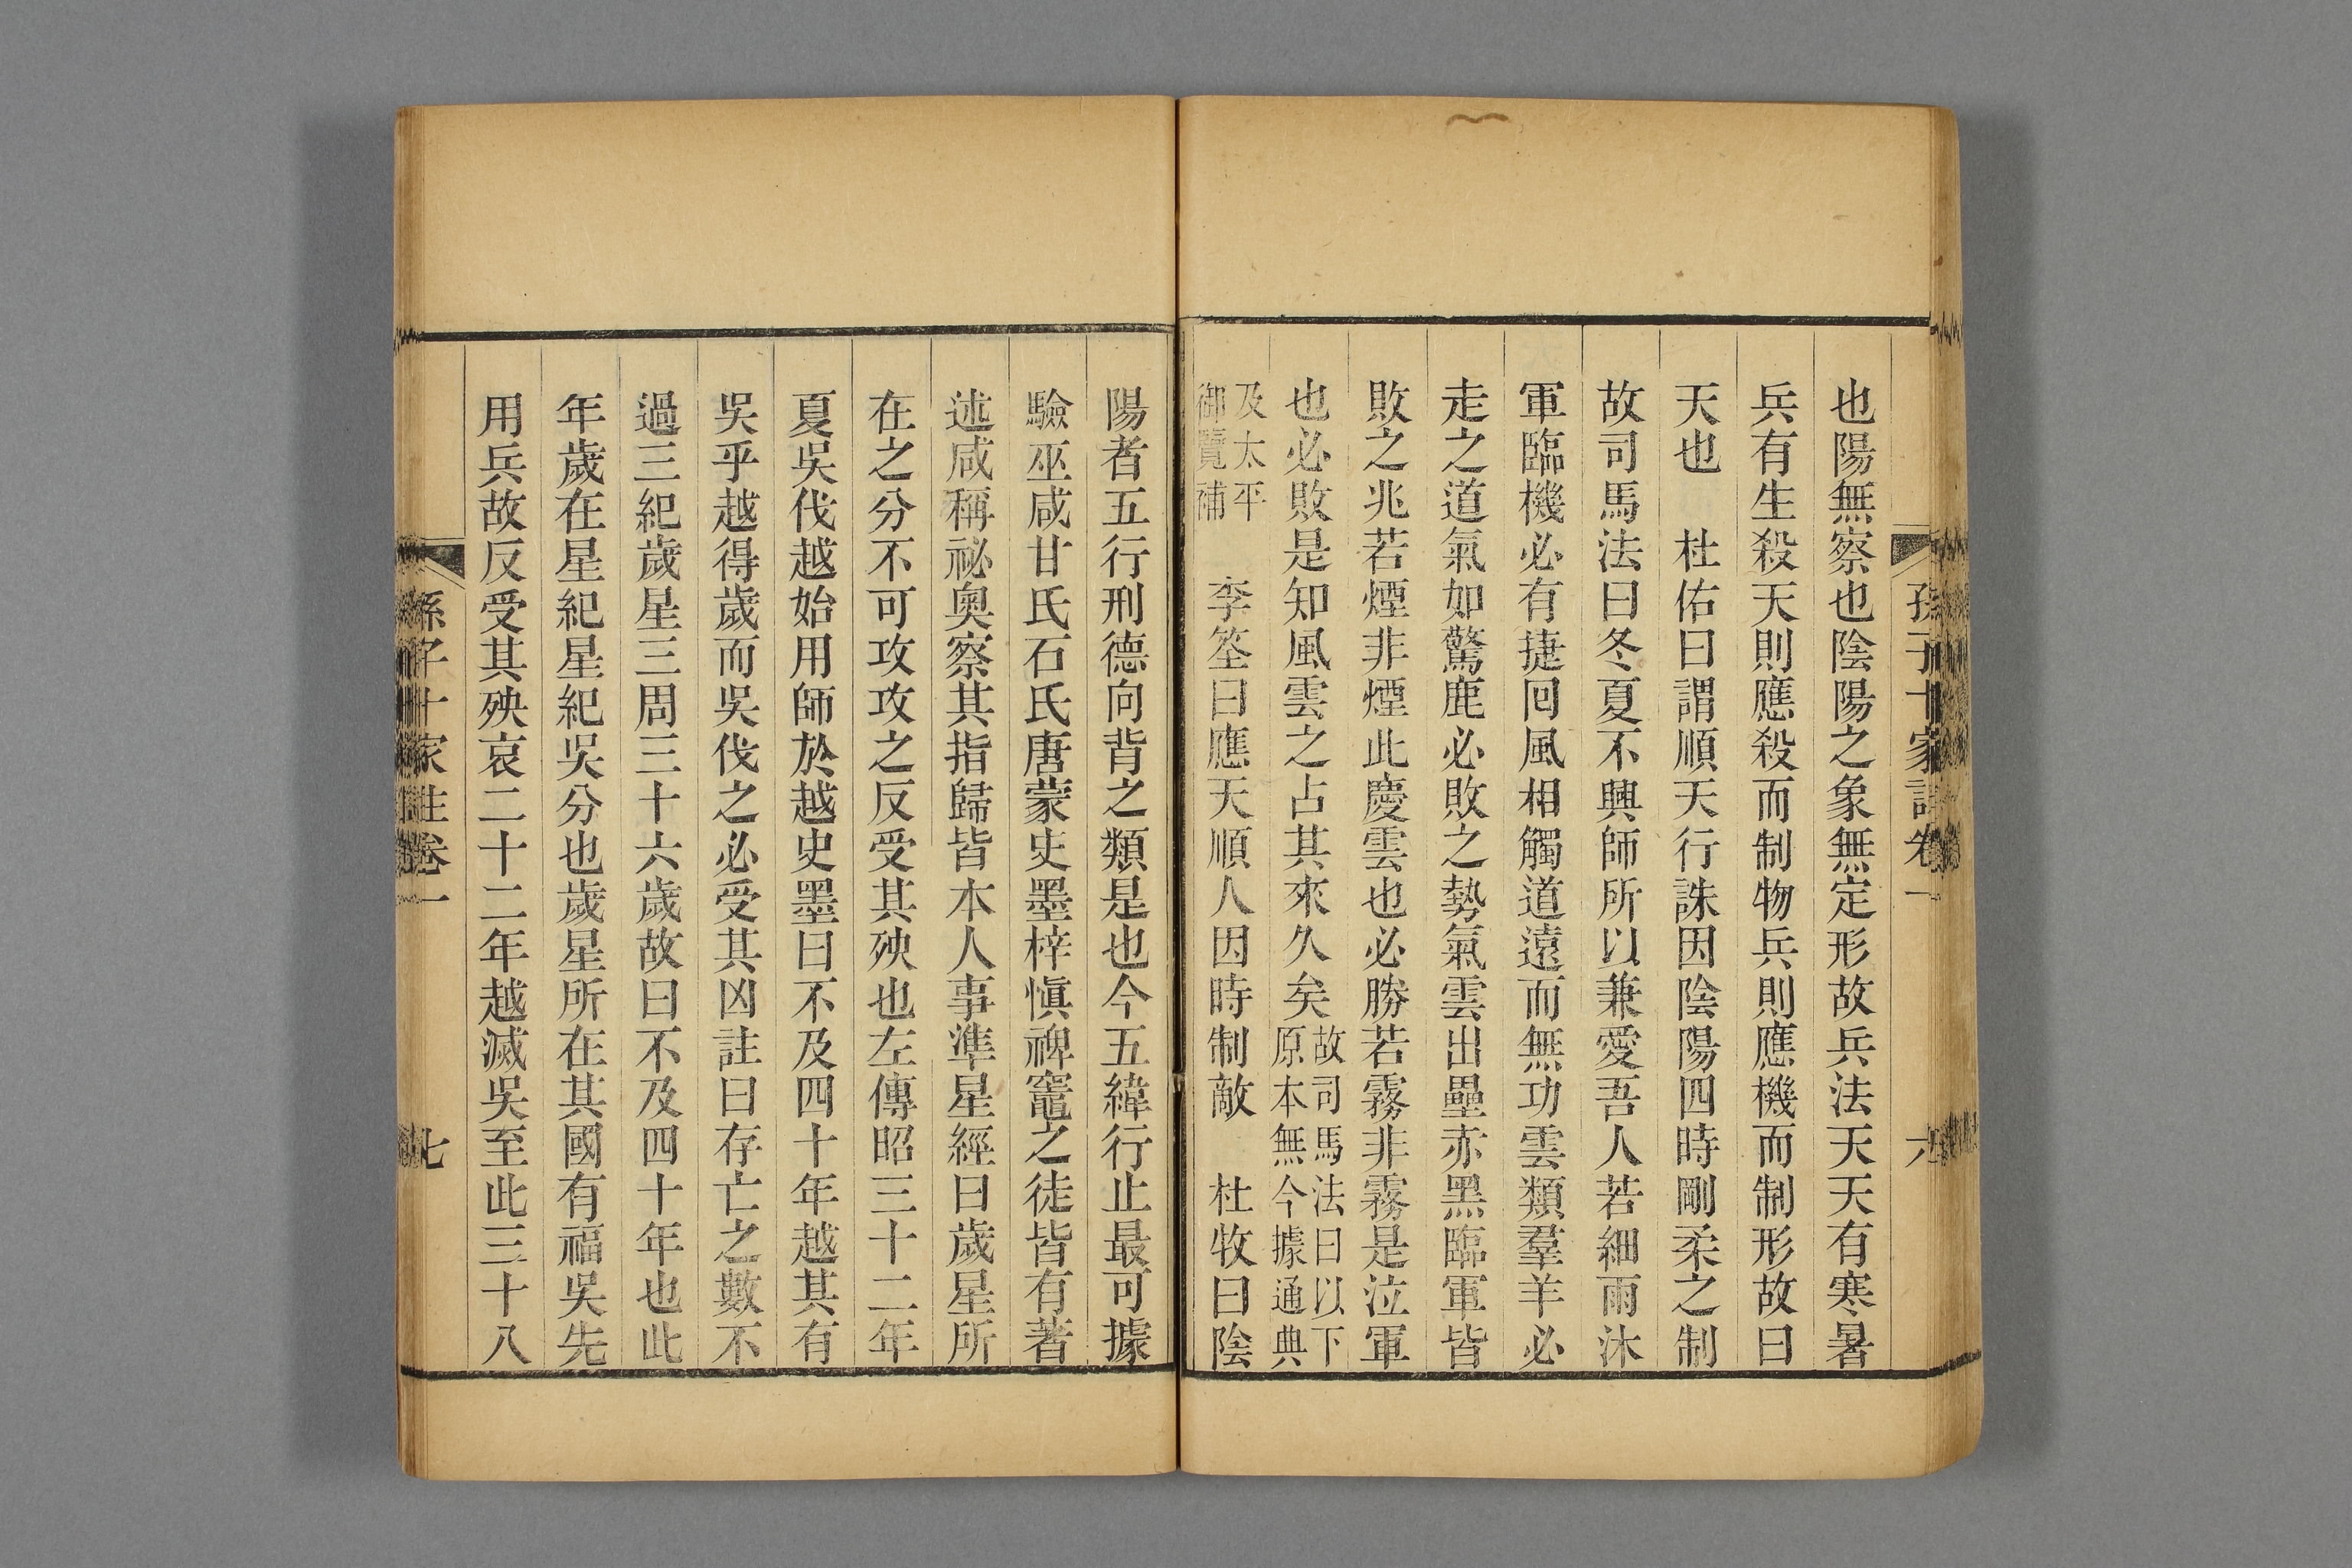 孫子十家註卷一
六
也陽無察也陰陽之象無定形故兵法天天有寒暑
兵有生殺天則應殺而制物兵則應機而制形故曰
天也　杜佑曰謂順天行誅因陰陽四時剛柔之制
故司馬法曰冬夏不興師所以兼愛吾人若細雨沐
軍臨機必有捷囘風相觸道遠而無功雲類羣羊必
走之道氣如驚鹿必敗之勢氣雲出壘赤黑臨軍皆
敗之兆若煙非煙此慶雲也必勝若霧非霧是泣軍
也必敗是知風雲之占其來久矣故司馬法曰以下原本無今據通典
及太平御覽補　李筌曰應天順人因時制敵　杜牧曰陰
陽者五行刑德向背之類是也今五緯行止最可據
驗巫咸甘氏石氏唐蒙史墨梓愼禆竈之徒皆有著
述咸稱祕奧察其指歸皆本人事準星經曰歲星所
在之分不可攻攻之反受其殃也左傳昭三十二年
夏吳伐越始用師於越史墨曰不及四十年越其有
吳乎越得歲而吳伐之必受其凶註曰存亡之數不
過三紀歲星三周三十六歲故曰不及四十年也此
年歲在星紀星紀吳分也歲星所在其國有福吳先
用兵故反受其殃哀二十二年越滅吳至此三十八
孫子十家註卷一
七